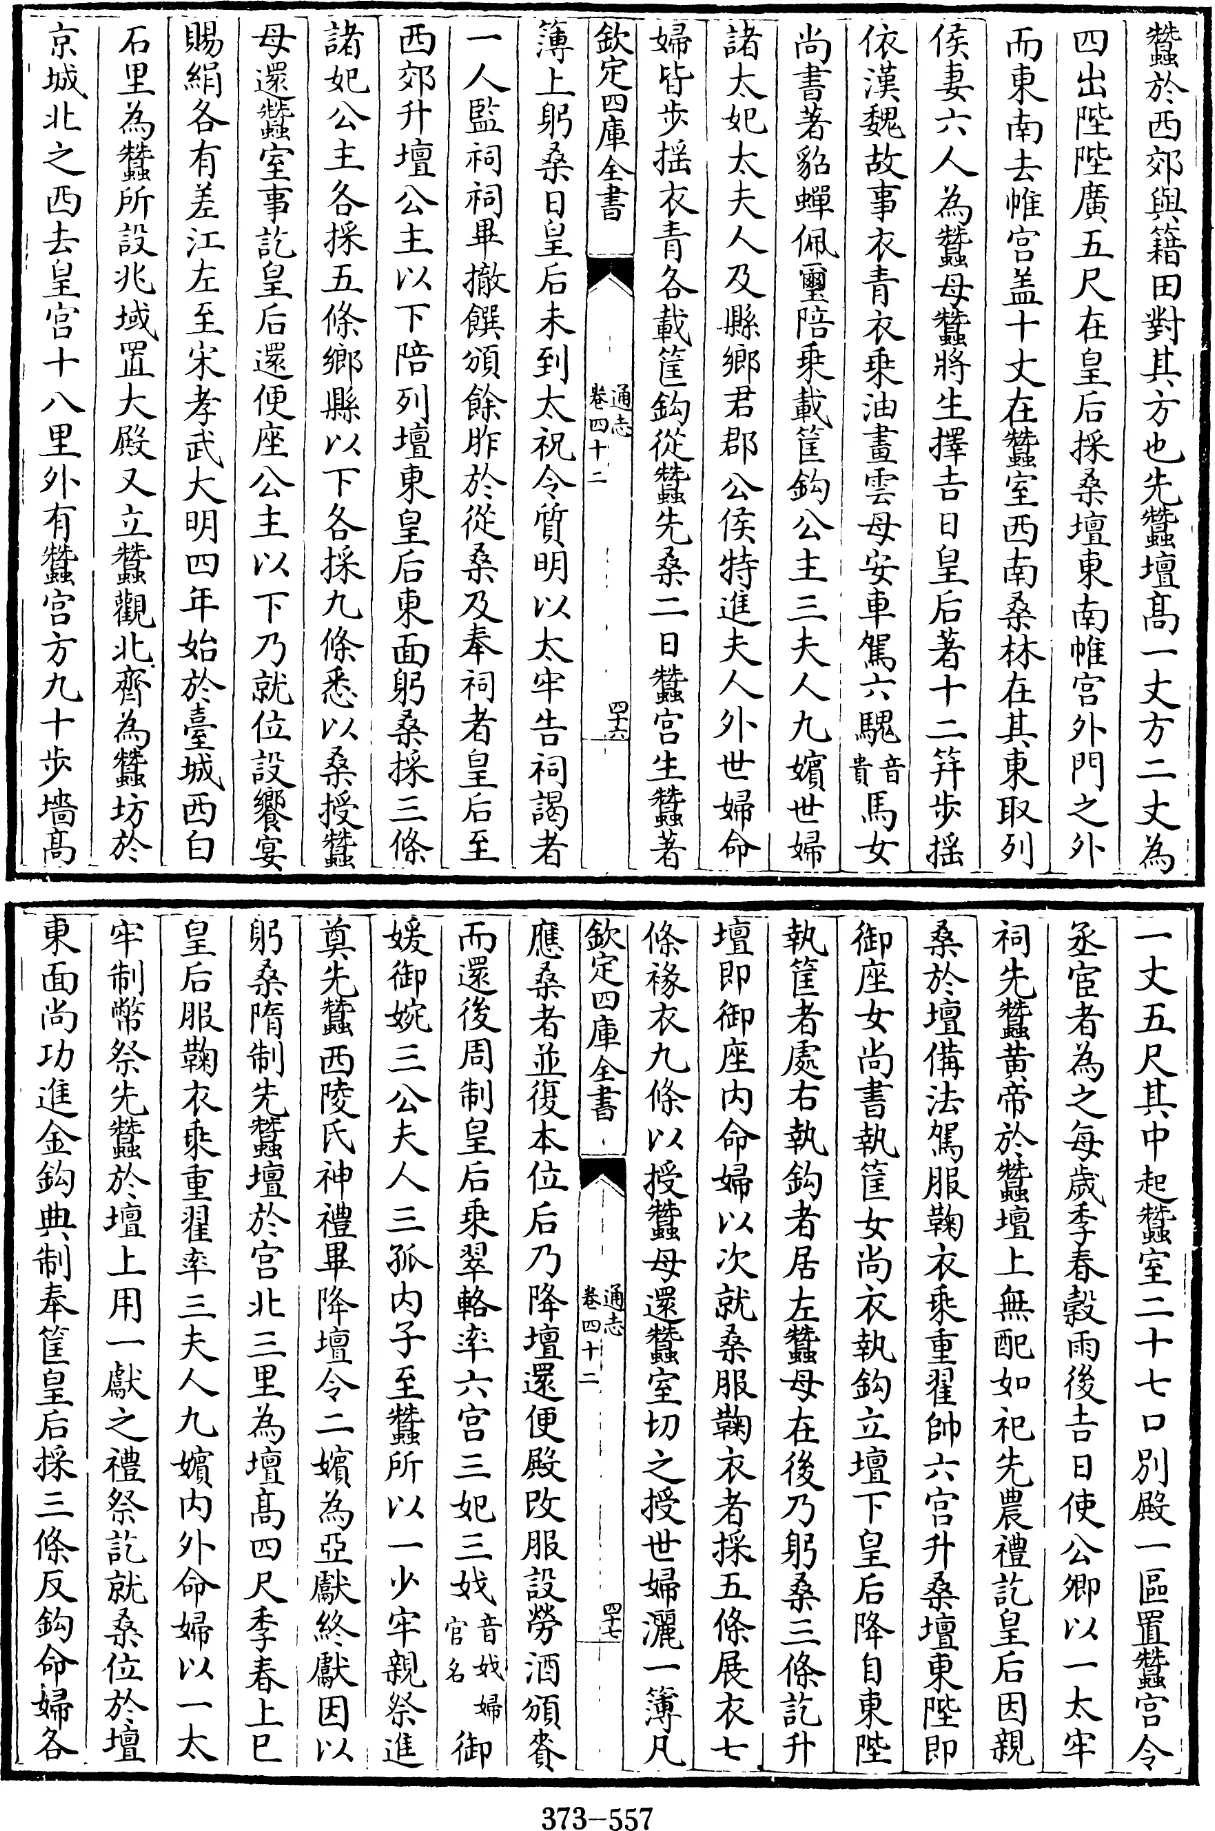 蠶於西郊與籍田對其方也先蠶壇髙一丈方二丈為
四出陛陛廣五尺在皇后採桑壇東南帷宫外門之外
而東南去帷宫盖十丈在蠶室西南桑林在其東取列
侯妻六人為蠶母蠶將生擇吉日皇后著十二筓步揺
依漢魏故事衣青衣乗油畫雲母安車駕六騩音貴馬女
尚書著貂蟬佩璽陪乗載筐鈎公主三夫人九嬪世婦
諸太妃太夫人及縣鄉君郡公侯特進夫人外世婦命
婦皆步揺衣青各載筐鈎從蠶先桑二日蠶宫生蠶著
欽定四庫全書 通志卷四十二 四十六
簿上躬桑日皇后未到太祝令質明以太牢告祠謁者
一人監祠祠畢撤饌頒餘胙於從桑及奉祠者皇后至
西郊升壇公主以下陪列壇東皇后東面躬桑採三條
諸妃公主各採五條鄉縣以下各採九條悉以桑授蠶
母還蠶室事訖皇后還便座公主以下乃就位設饗宴
賜絹各有差江左至宋孝武大明四年始於臺城西白
石里為蠶所設兆域置大殿又立蠶觀北齊為蠶坊於
京城北之西去皇宫十八里外有蠶宫方九十步墻髙
一丈五尺其中起蠶室二十七口别殿一區置蠶宫令
丞宦者為之每歲季春榖雨後吉日使公卿以一太牢
祠先蠶黄帝於蠶壇上無配如祀先農禮訖皇后因親
桑於壇備法駕服鞠衣乘重翟帥六宫升桑壇東陛即
御座女尚書執筐女尚衣執鈎立壇下皇后降自東陛
執筐者處右執鈎者居左蠶母在後乃躬桑三條訖升
壇即御座内命婦以次就桑服鞠衣者採五條展衣七
條褖衣九條以授蠶母還蠶室切之授世婦灑一簿凡
欽定四庫全書 通志卷四十二 四十七
應桑者並復本位后乃降壇還便殿改服設勞酒頒賚
而還後周制皇后乗翠輅率六宫三妃三㚤音㚤婦官名御
媛御婉三公夫人三孤内子至蠶所以一少牢親祭進
奠先蠶西陵氏神禮畢降壇令二嬪為亞獻終獻因以
躬桑隋制先蠶壇於宫北三里為壇髙四尺季春上巳
皇后服鞠衣乘重翟率三夫人九嬪内外命婦以一太
牢制幣祭先蠶於壇上用一獻之禮祭訖就桑位於壇
東面尚功進金鈎典制奉筐皇后採三條反鈎命婦各
373-557